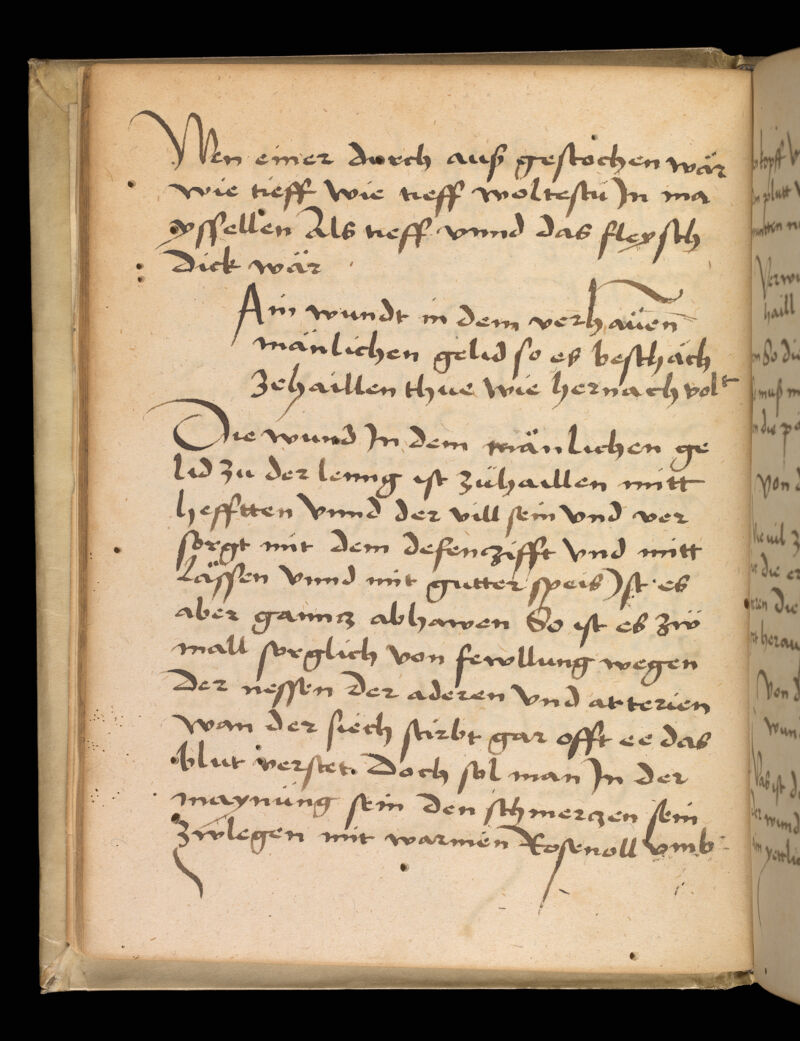 Wen einer durch auß gestochen wär
wie tieff wie tieff woltestu In ma
yssellen Als tieff vnnd das fleysch
dick wär
Ain wundt in dem verhauen
mänlichen gelid so es beschäch
zehaillen thue wie hernach volt
Die wund In dem mänlichen ge
lid zu der lenng ist zuhaillen mitt
hefftten vnnd der vill sein vnd ver
sorgt mit dem defenczifft vnd mitt
Lässen vnnd mit gutter speis Ist es
aber ganncz abhawen So ist es zw
mall sorglich von fewllung wegen
der nessen der aderen vnd atterien
wan der siech stirbt gar offt ee das
blut verstet. Doch sol man In der
maynung sein den schmerczen sein
zwlegen mit warmen Rosenoll vmb